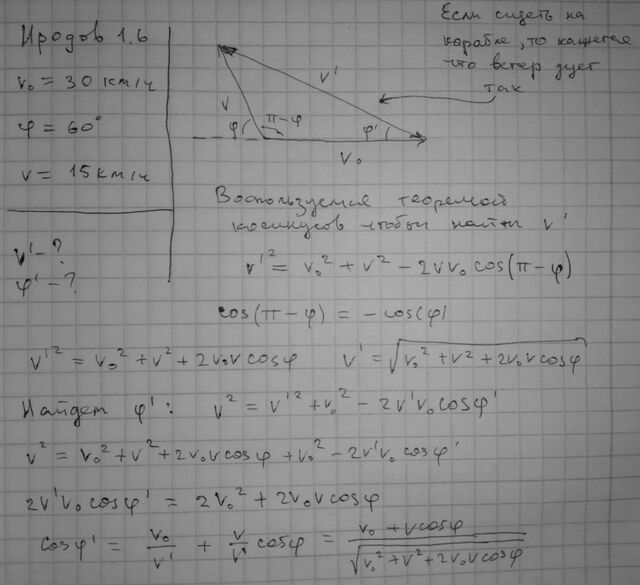 Иродов 1.6
v₀ = 30 км/ч
φ = 60°
v = 15 км/ч
v' - ?
φ' - ?
Если сидеть на
корабле, то кажется
что ветер дует
так
v'
v
φ
π-φ
φ'
v₀
Воспользуемся теоремой
косинусов чтобы найти v'
v'² = v₀² + v² - 2vv₀ cos(π-φ)
cos(π-φ) = -cos(φ)
v'² = v₀² + v² + 2v₀v cosφ v' = √(v₀² + v² + 2v₀v cosφ)
Найдем φ': v² = v'² + v₀² - 2v'v₀ cosφ'
v² = v₀² + v² + 2v₀v cosφ + v₀² - 2v'v₀ cosφ'
2v'v₀ cosφ' = 2v₀² + 2v₀v cosφ
cosφ' = v₀/v' + v/v' cosφ = (v₀ + v cosφ)/√(v₀² + v² + 2v₀v cosφ)